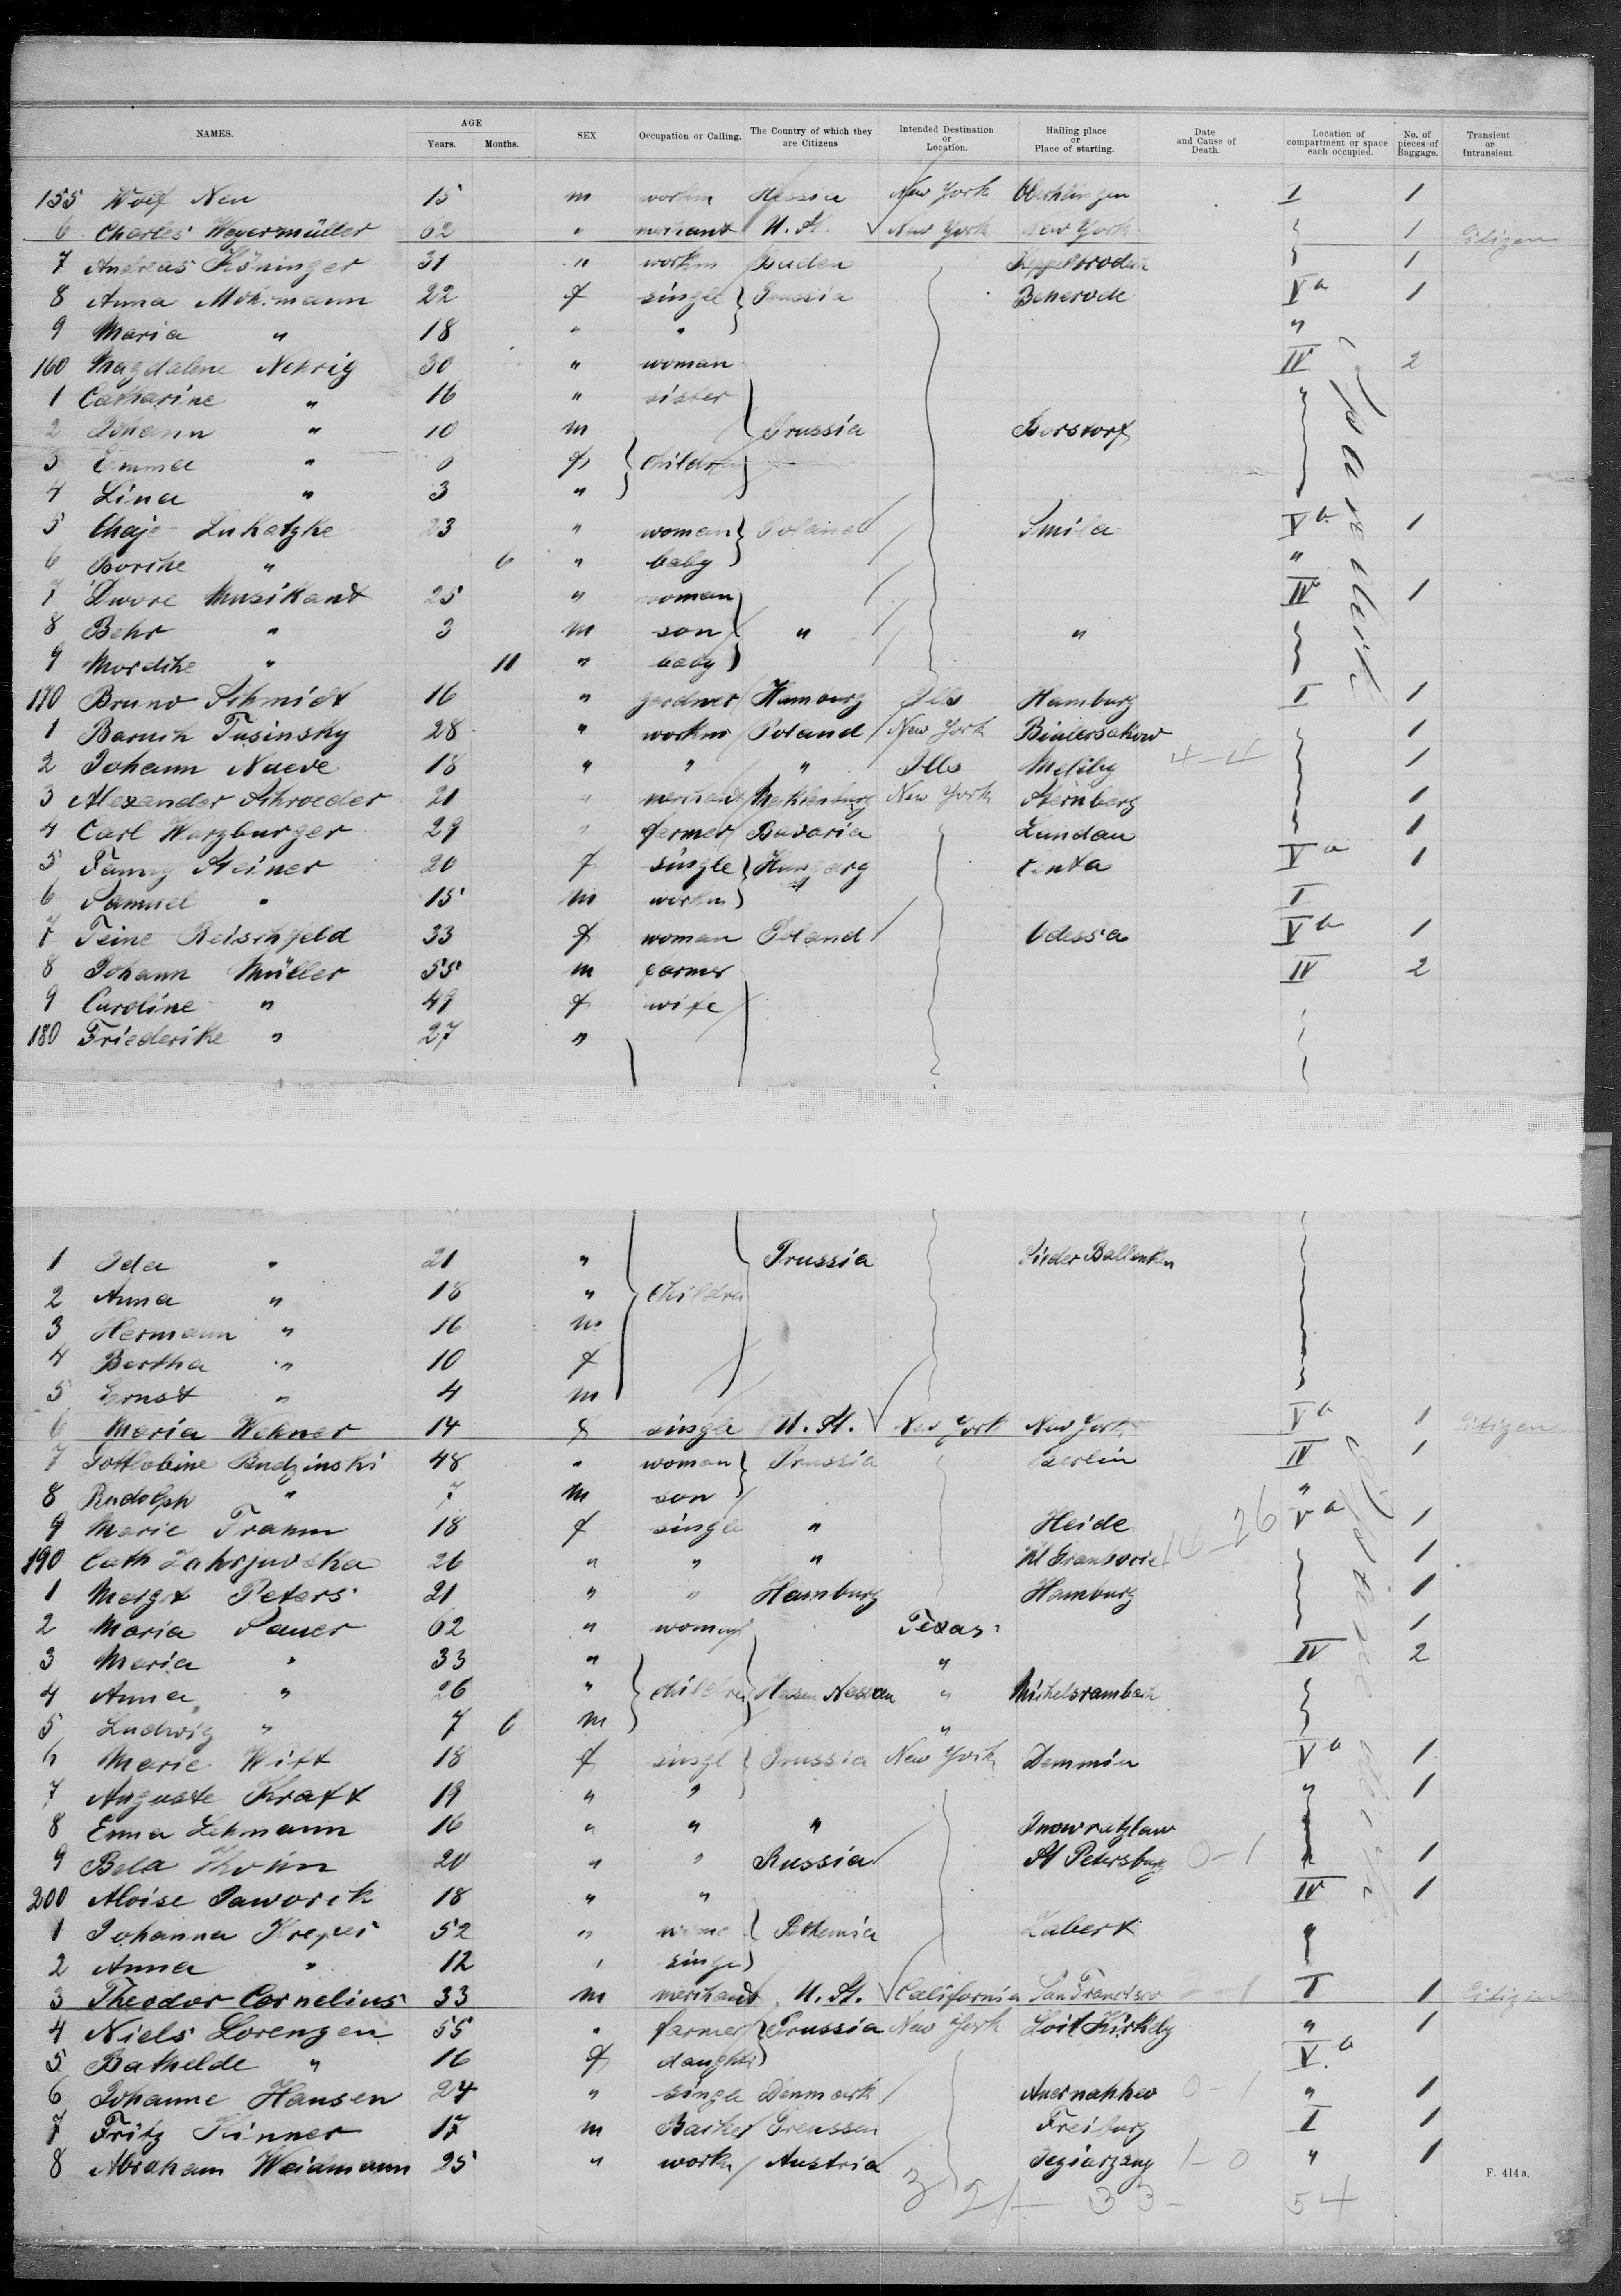 NAMES. AGE Years. Months. SEX Occupation or Calling. The Country of which they are Citizens Intended Destination or Location. Hailing place or Place of starting. Date and Cause of Death. Location of compartment or space each occupied. No. of pieces of Baggage. Transient or Intransient.
155 Wolf Neu 15 m workm Hessia New York I 1
6 Charles Weyermüller 62 " merchant U. St. New York New York 1 Citizen
7 Andreas Köninger 31 " workm Baden 1
8 Anna 22 f single Prussia Benerode Va 1
9 Maria " 18 " " "
160 Magdalene Nehrig 30 " woman IV 2
1 Catharine " 16 " sister "
2 Johann " 10 m Prussia Borstorf
3 Emma " f children
4 Lina " 3 "
5 Chaje Lukatzke 23 " woman Poland Smila Va 1
6 Borche " 6 " baby "
7 Dwore Musikant 25 " woman IV 1
8 Behr " 3 m son " "
9 Mordche " 11 " baby
170 Bruno Schmidt 16 " gardner Hamburg Ills Hamburg I 1
1 Baruch Tusinsky 28 " workm Poland New York 1
2 Johann Naeve 18 " " " Ills Melby 4-4 1
3 Alexander Schroeder 21 " merchant Mecklenburg New York Sternberg 1
4 Carl Wurzburger 29 " farmer Bavaria Landau 1
5 Fanny Steiner 20 f single Hungary Centa Va 1
6 Samuel " 15 m workm I
7 Feine Reischfeld 33 f woman Poland Odessa Va 1
8 Johann Müller 55 m farmer IV 2
9 Caroline " 49 f wife
180 Friederike " 27 "
1 Ida " 21 " Prussia
2 Anna " 18 " Childre
3 Hermann " 16 m
4 Bertha " 10 f
5 Ernst " 4 m
6 Maria Wehner 14 f single U. St. New York New York Va 1 Citizen
7 Gottlobine Budzinski 48 " woman Prussia Berlin IV 1
8 Rudolph " 7 m son "
9 Marie Frahm 18 f single " Heide 26 Va 1
190 Cath 26 " " " 1
1 Margt Peters 21 " " Hamburg Hamburg 1
2 Maria Sauer 62 " woman Texas 1
3 Maria " 33 " " IV 2
4 Anna " 26 " childre Hessen Nassau " Michelsrombach
5 Ludwig " 7 6 m "
6 Marie Witt 18 f singl Prussia New York Demmin Va 1
7 Auguste Kraft 19 " " " 1
8 Emma Lehmann 16 " " " Inowratzlaw
9 Bela 20 " " Russia St Petersburg 0-1 1
200 Aloise Jaworek 18 " " IV 1
1 Johanna 52 " Bohemia "
2 Anna " 12 " singe
3 Theodor Cornelius 33 m merchant U. St. California San Francisco I 1 Citizen
4 Niels Lorenzen 55 " farmer Prussia New York Loit Kirkeby " 1
5 Bathelde " 16 f daughtr Va
6 Johanne Hansen 24 " single Denmark 0-1 " 1
7 Fritz Kinner 17 m Backer Preussen Freiburg I 1
8 Abraham Weidmann 25 " workm Austria 1-0 " 1
3 21- 33- 54
F. 414 a.